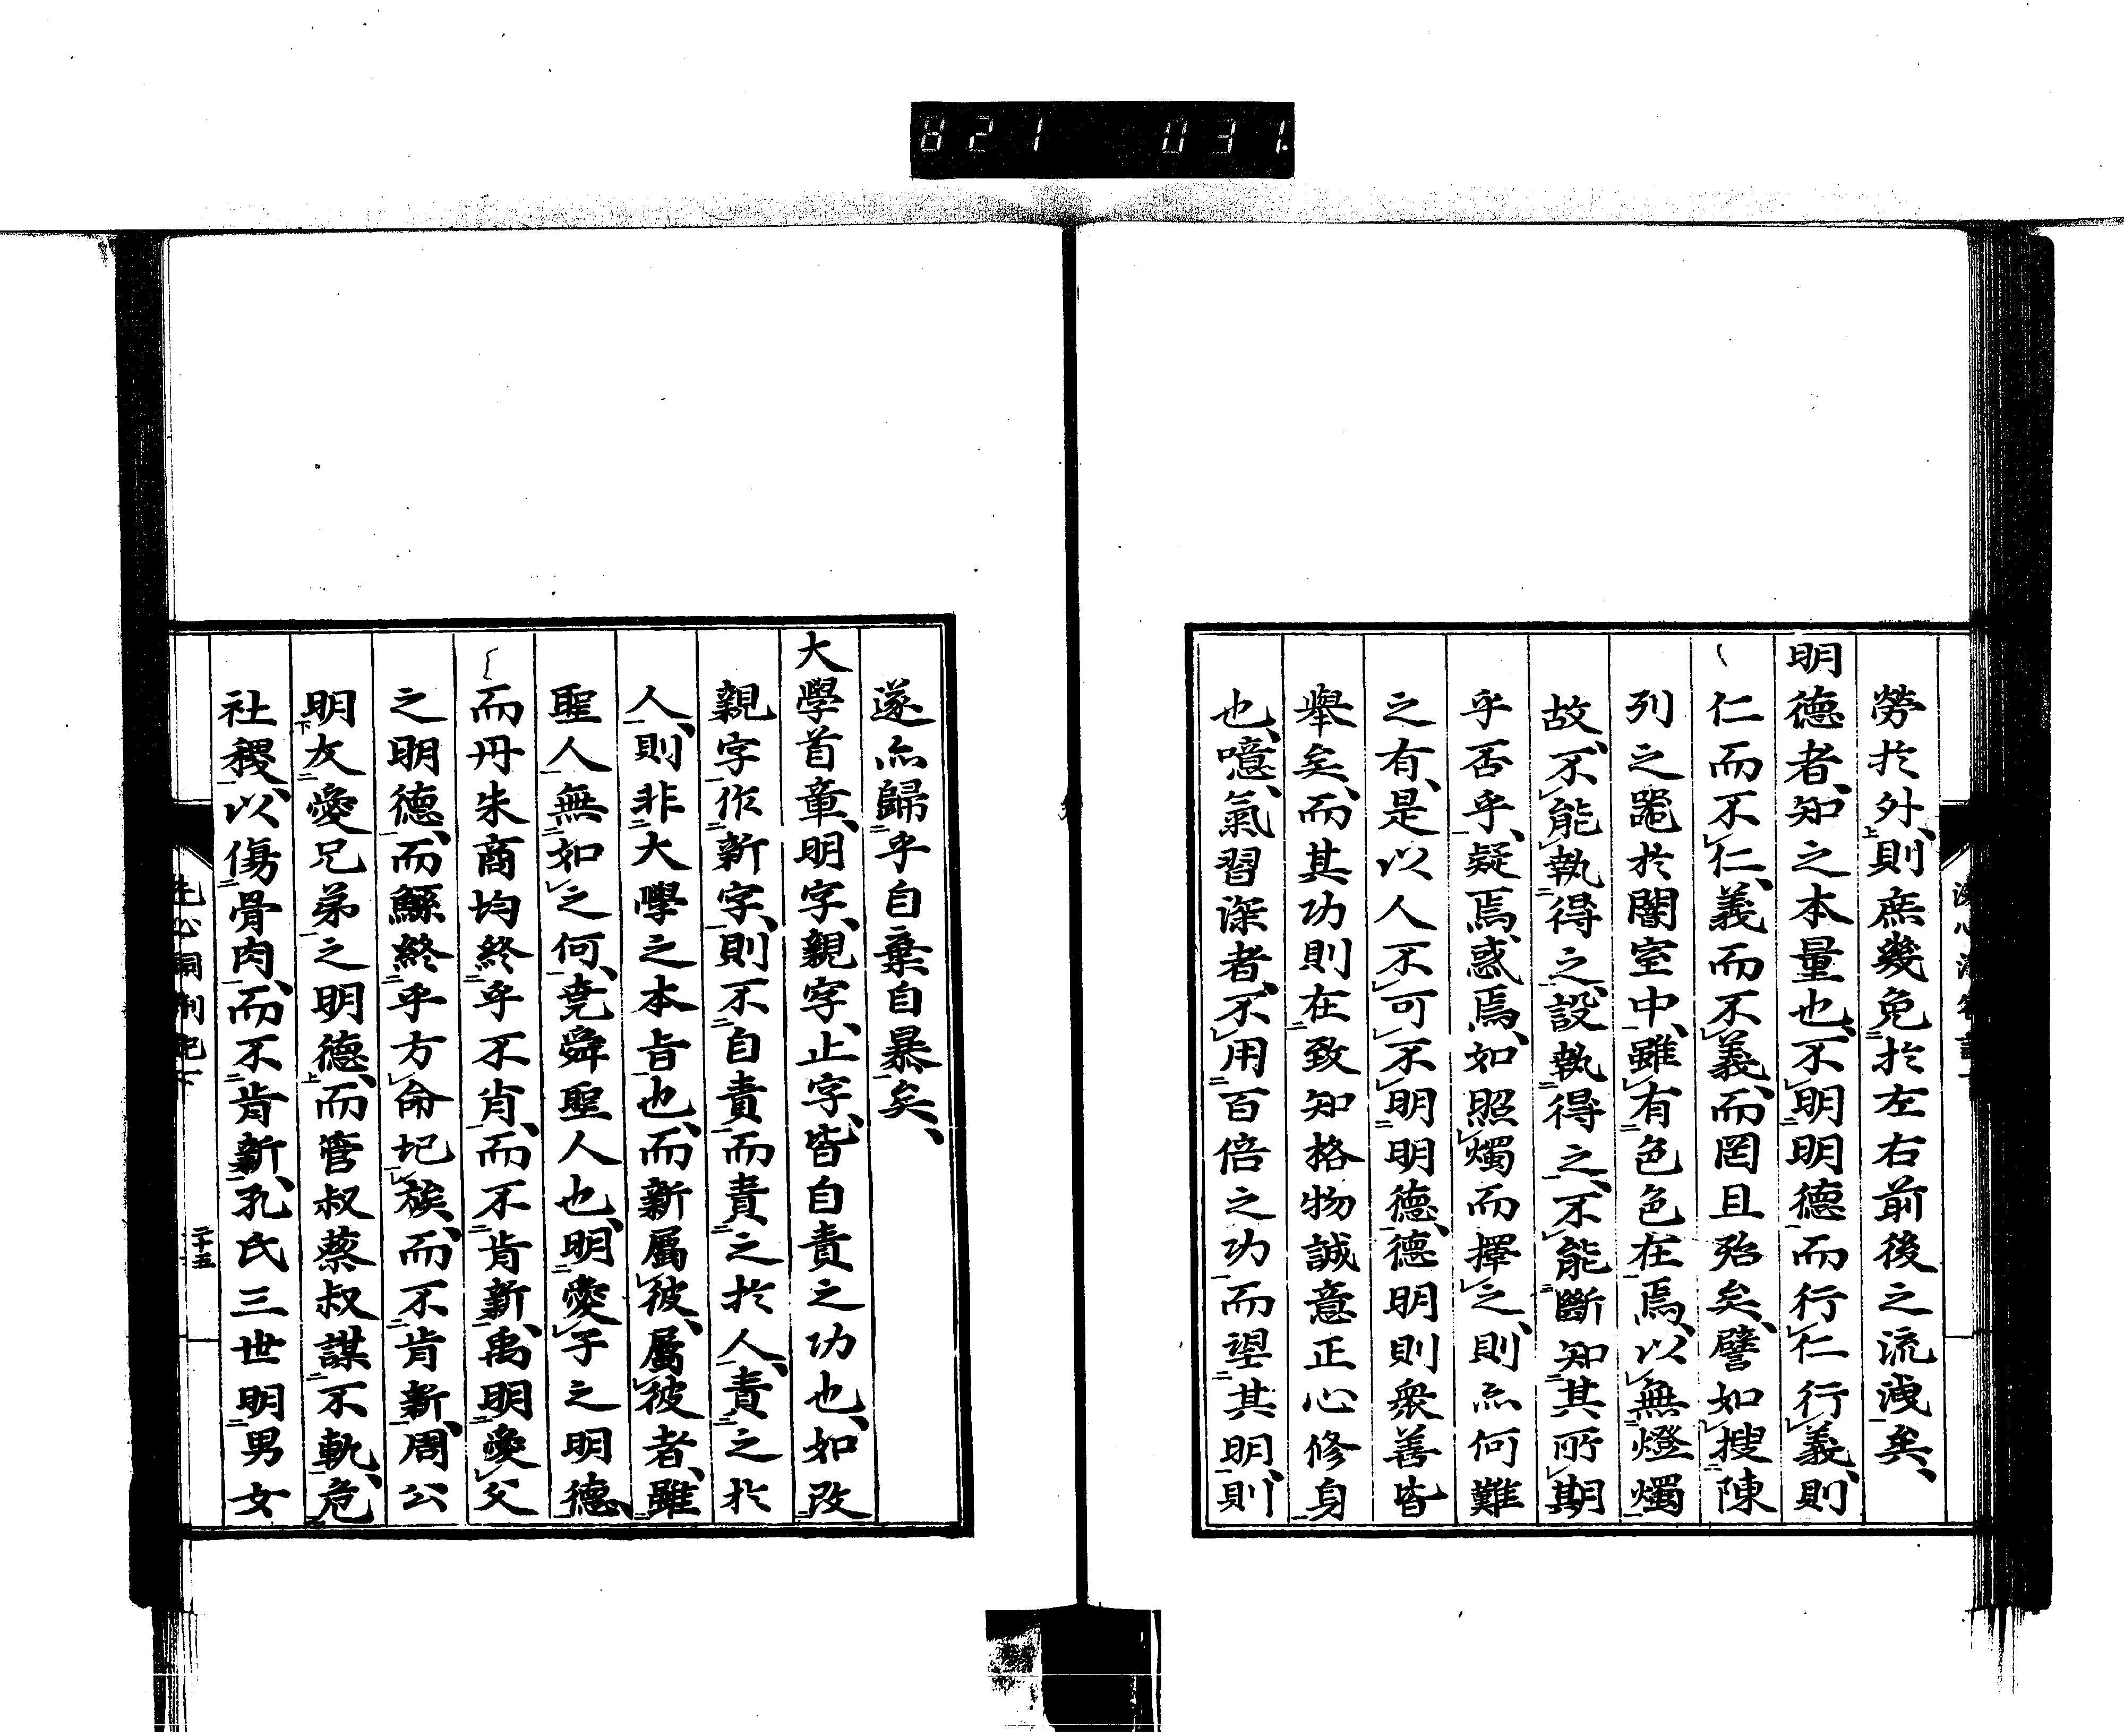 821 031.
勞於外、則庶幾免於左右前後之流洩矣、
明德者、知之本量也、不明明德而行仁行義、則
仁而不仁、義而不義、而罔且殆矣、譬如搜陳
列之噐於闇室中、雖有色色在焉、以無燈燭
故、不能執得之、設執得之、不能斷知其所期
乎否乎、疑焉、惑焉、如照燭而擇之、則亦何難
之有、是以人不可不明明德、德明則衆善皆
舉矣、而其功則在致知格物誠意正心修身
也、噫、氣習深者、不用百倍之功而望其明、則
遂亦歸乎自棄自暴矣、
大學首章、明字、親字、止字、皆自責之功也、如改
親字作新字、則不自責而責之於人、責之於
人、則非大學之本旨也、而新屬彼、屬彼者、雖
聖人無如之何、堯舜聖人也、明愛子之明德、
而丹朱商均終乎不肖、而不肯新、禹明愛父
之明德、而鯀終乎方命圮族、而不肯新、周公
明友愛兄弟之明德、而管叔蔡叔謀不軌、危
社稷、以傷骨肉、而不肯新、孔氏三世明男女
洗心洞劄記下
二十五